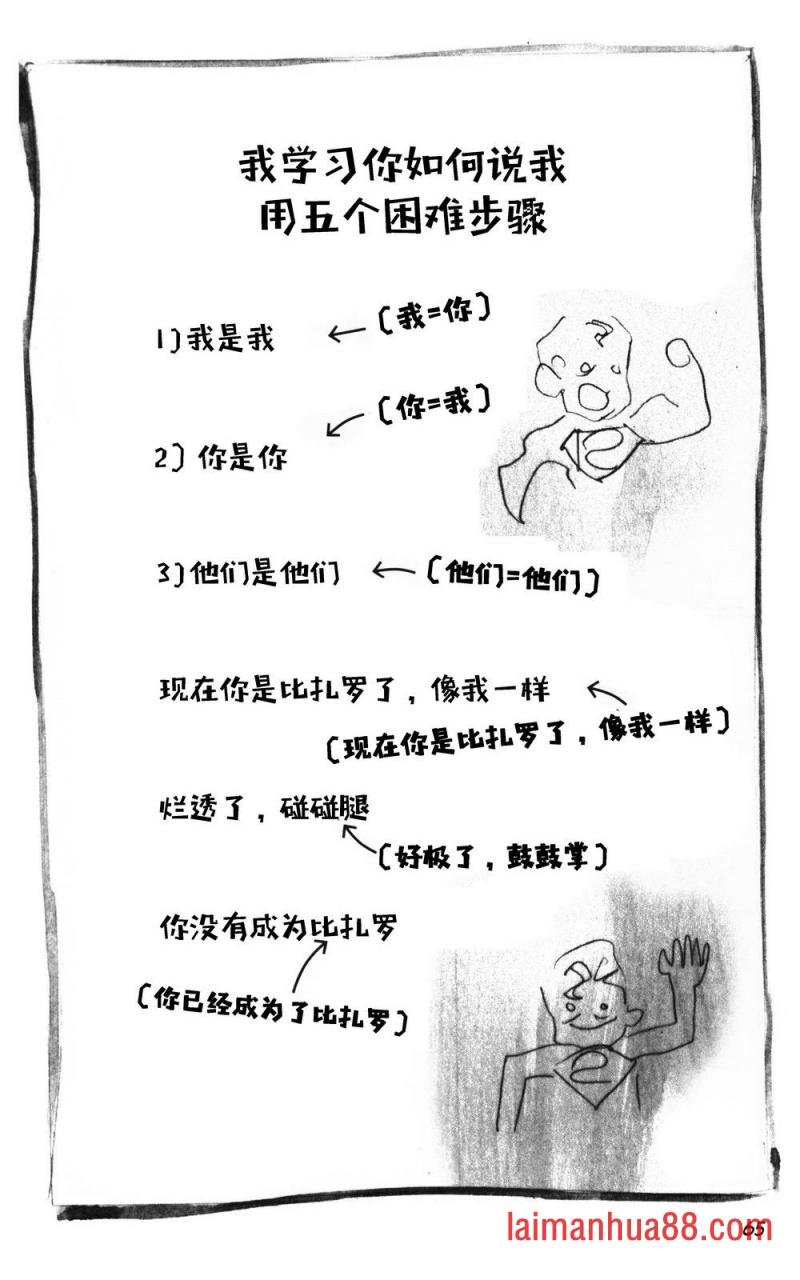 我学习你如何说我
用五个困难步骤
1)我是我
(我=你)
2)你是你
(你=我)
3)他们是他们
(他们=他们)
现在你是比扎罗了，像我一样
(现在你是比扎罗了，像我一样)
烂透了，碰碰腿
(好极了，鼓鼓掌)
你没有成为比扎罗
(你已经成为了比扎罗)
65
laimanhua88.com